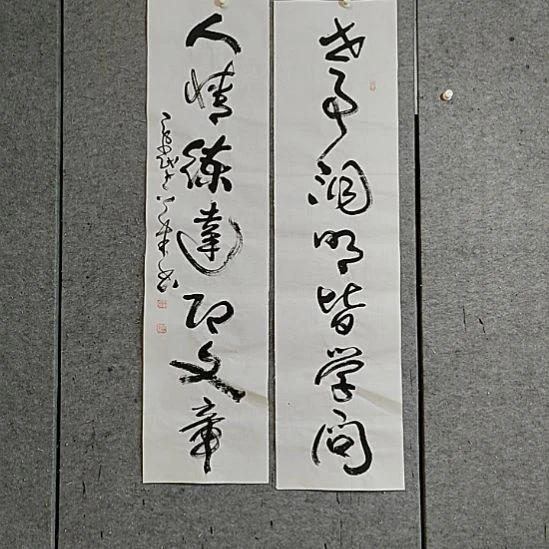 世事洞明皆学问
人情练达即文章